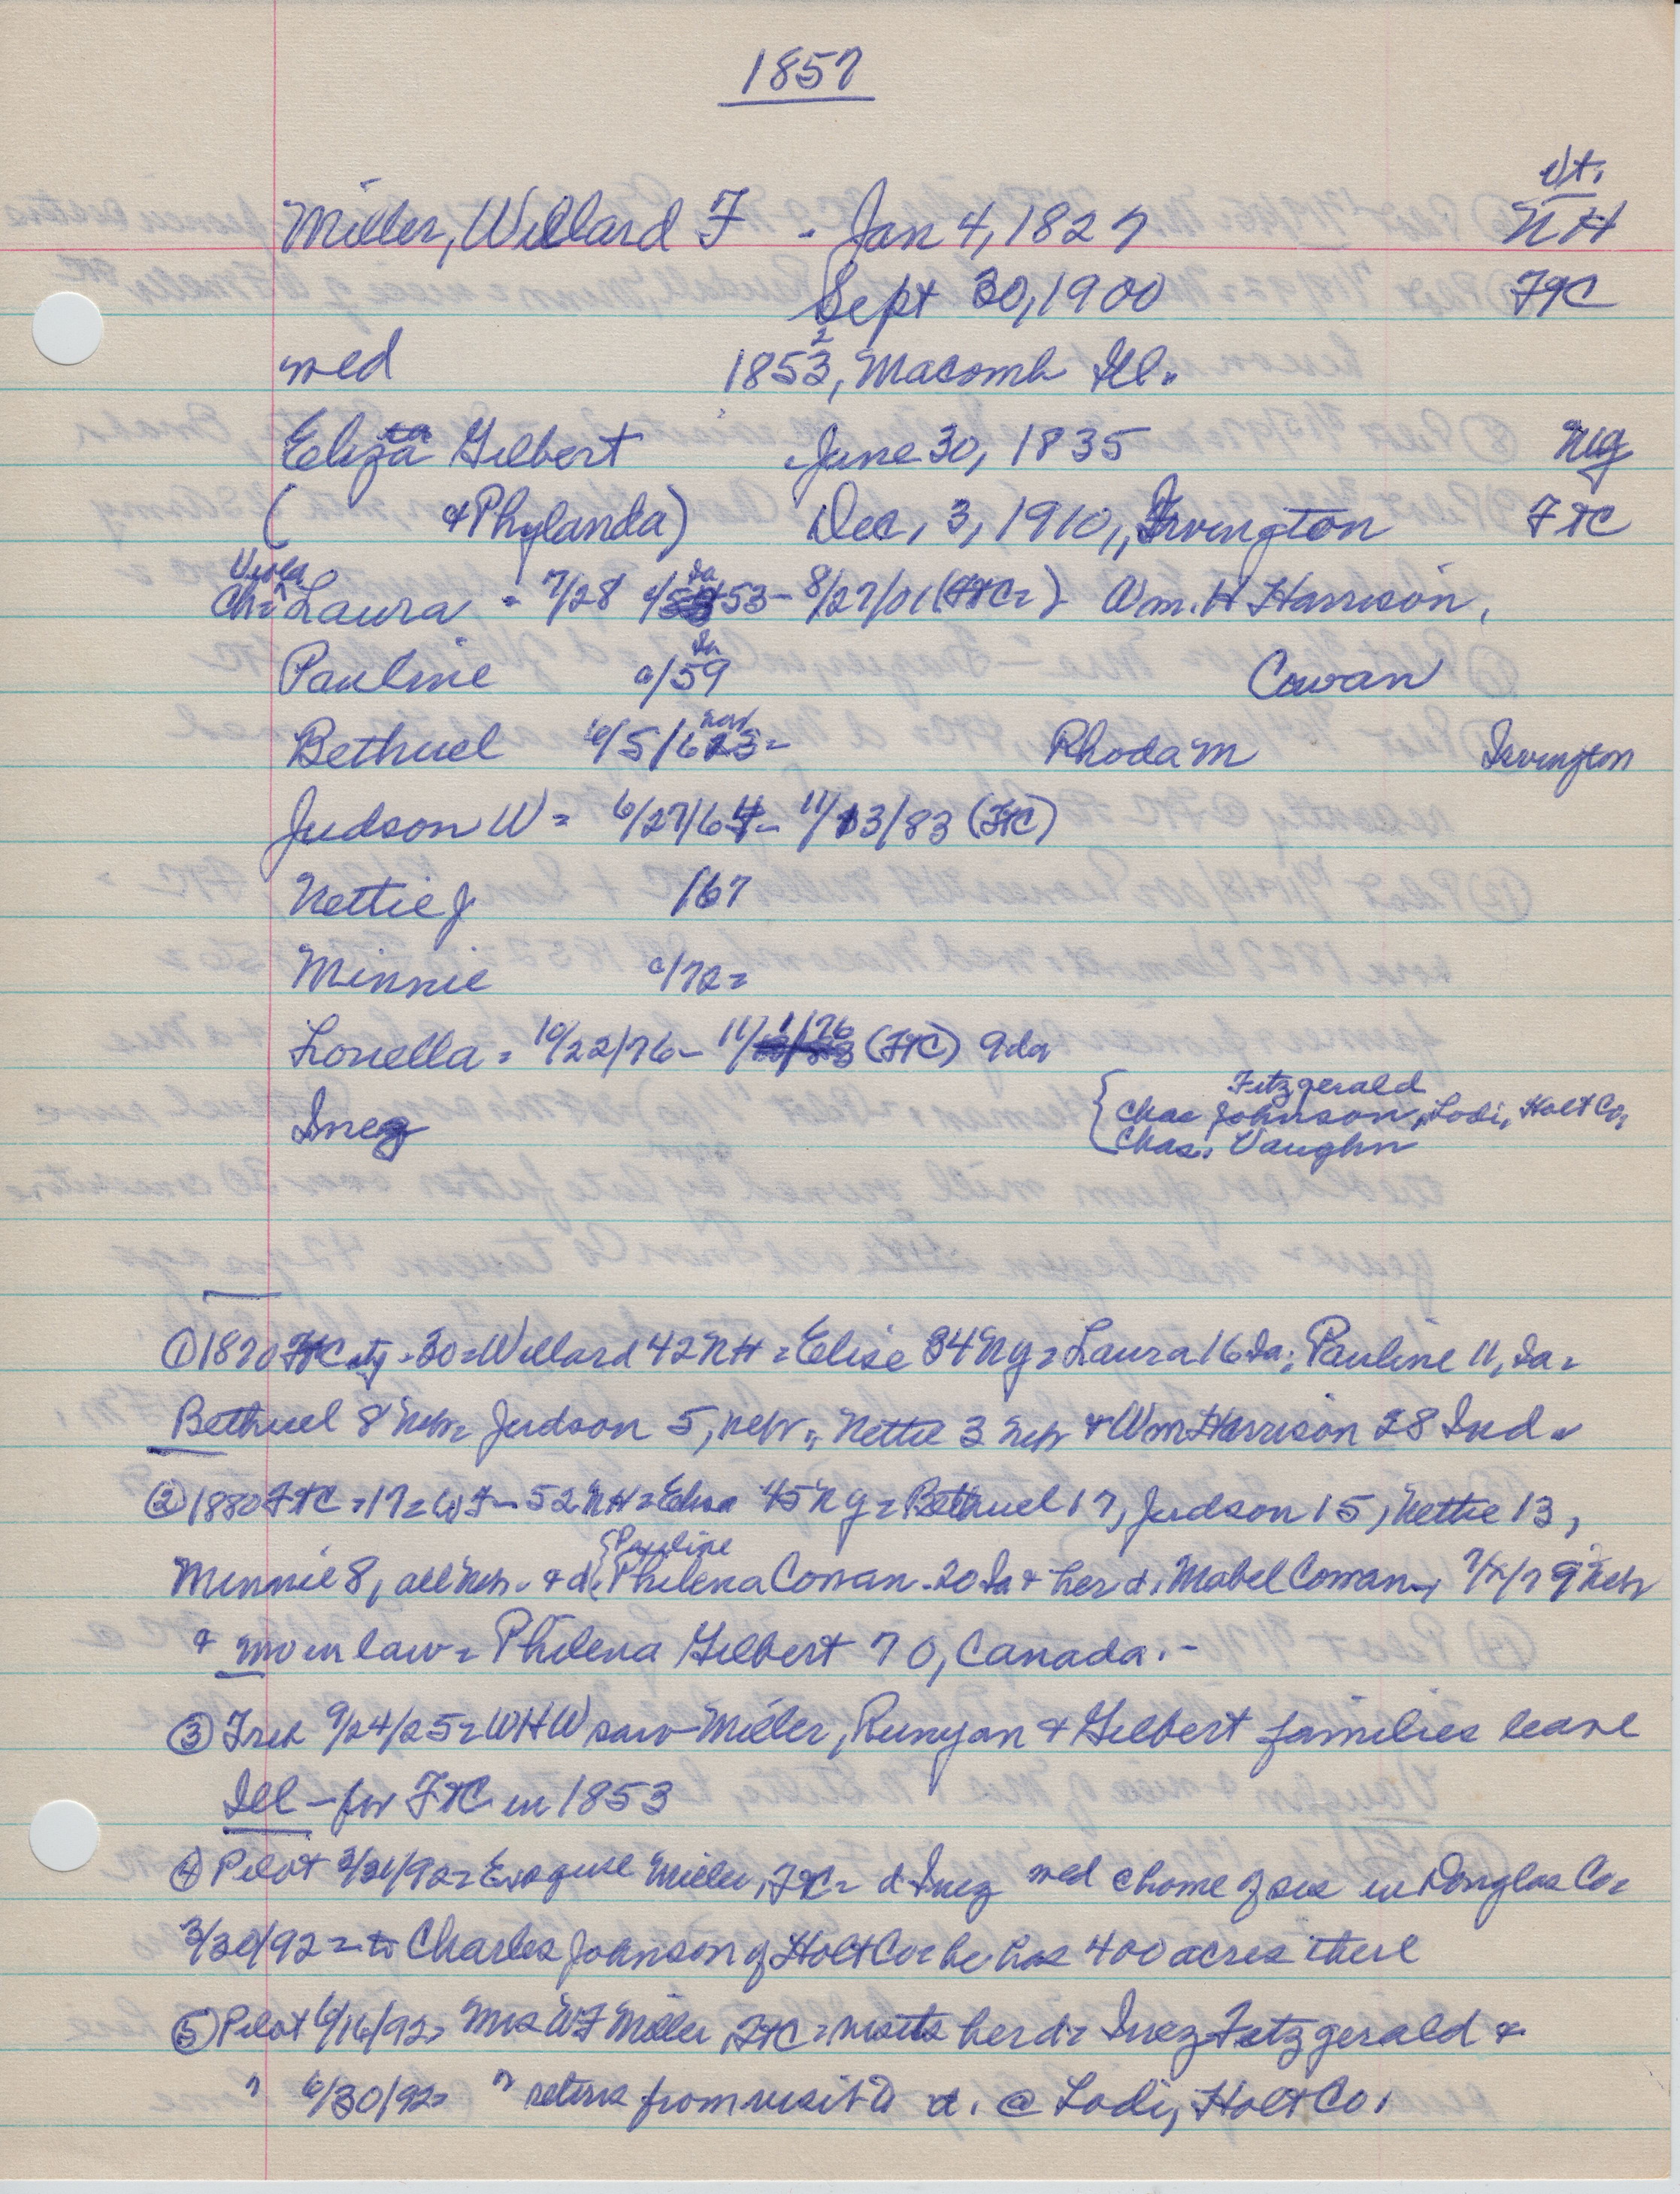 1857
Vt.
Miller, Willard F - Jan 4, 1827 NH
Sept 30, 1900 FTC
med 1853, Macomb Ill.
2
Eliza Gilbert June 30, 1835 NY
( & Phylanda) Dec, 3, 1910,, Irvington FTC
Viola Ia
Ch= Laura = 7/28 53- 8/27/01 (FTC=) Wm. H Harrison,
Ia
Pauline c/59 Cowan
Bethuel 6/5/63= Rhoda M Irvington
Judson W = 6/27/64- 11/13/83 (FTC)
Nettie J /67
Minnie c/72=
Louella = 10/22/76- 11/1/76 (FTC) 9da
Fitzgerald
Inez { Chas Johnson, Lodi, Holt Co,
Chas. Vaughn
① 1870 FTC -30= Willard 42 NH = Elise 34 NY = Laura 16 Ia; Pauline 11, Ia=
Bethuel 8 Neb= Judson 5, Neb,, Nettie 3 Neb & Wm Harrison 28 Ind
② 1880 FTC = 17= WF- 52 NH= Eliza 45 NY= Bethuel 17, Judson 15, Nettie 13,
{Pauline
Minnie 8, all Neb. & d. {Philena Cowan -20 Ia & her d. Mabel Cowan, 79 Neb
& mo in law = Philena Gilbert 70, Canada.-
③ Trib 9/24/25= WHW saw Miller, Runyan & Gilbert families leave
Ill - for FTC in 1853
④ Pilot 3/31/92= Esquire Miller, FTC= d Inez med @ home of sis in Douglas Co=
3/30/92 = to Charles Johnson of Holt Co= he has 400 acres there
⑤ Pilot 6/16/92= Mrs WF Miller, FTC= visits her d= Inez Fitzgerald &
" 6/30/92= " returns from visit d. @ Lodi, Holt Co,